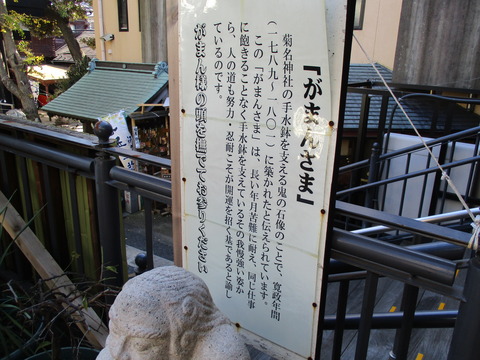 『がまんさま』
菊名神社の手水鉢を支える鬼の石像のことで、寛政年間
（一七八九〜一八〇一）に築かれたと伝えられています。
この「がまんさま」は、長い年月苦難に耐え、同じ仕事
に飽きることなく手水鉢を支えているその我慢強い姿か
ら、人の道も努力・忍耐こそが開運を招く基であると諭し
ているのです。
がまん様の頭を撫でてお参りください